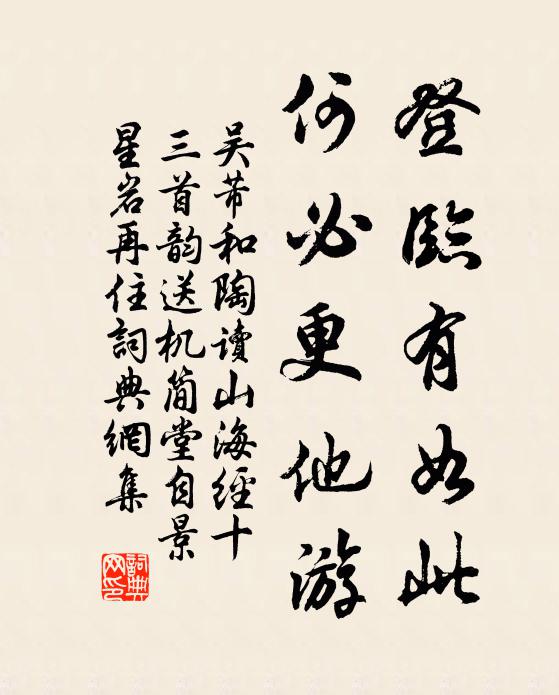 登臨有如此
何必更他游
吴芾和陶讀山海經十
三首韵送机简堂自景
星岩再住詞典網集
詞典
网印